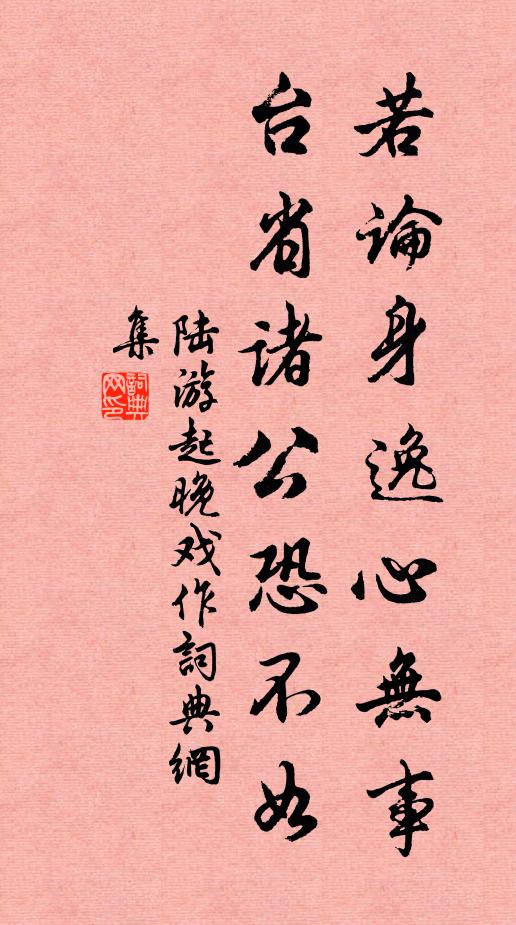 若論身逸心無事
台省諸公恐不如
陆游起晚戏作詞典網
集
詞典網印